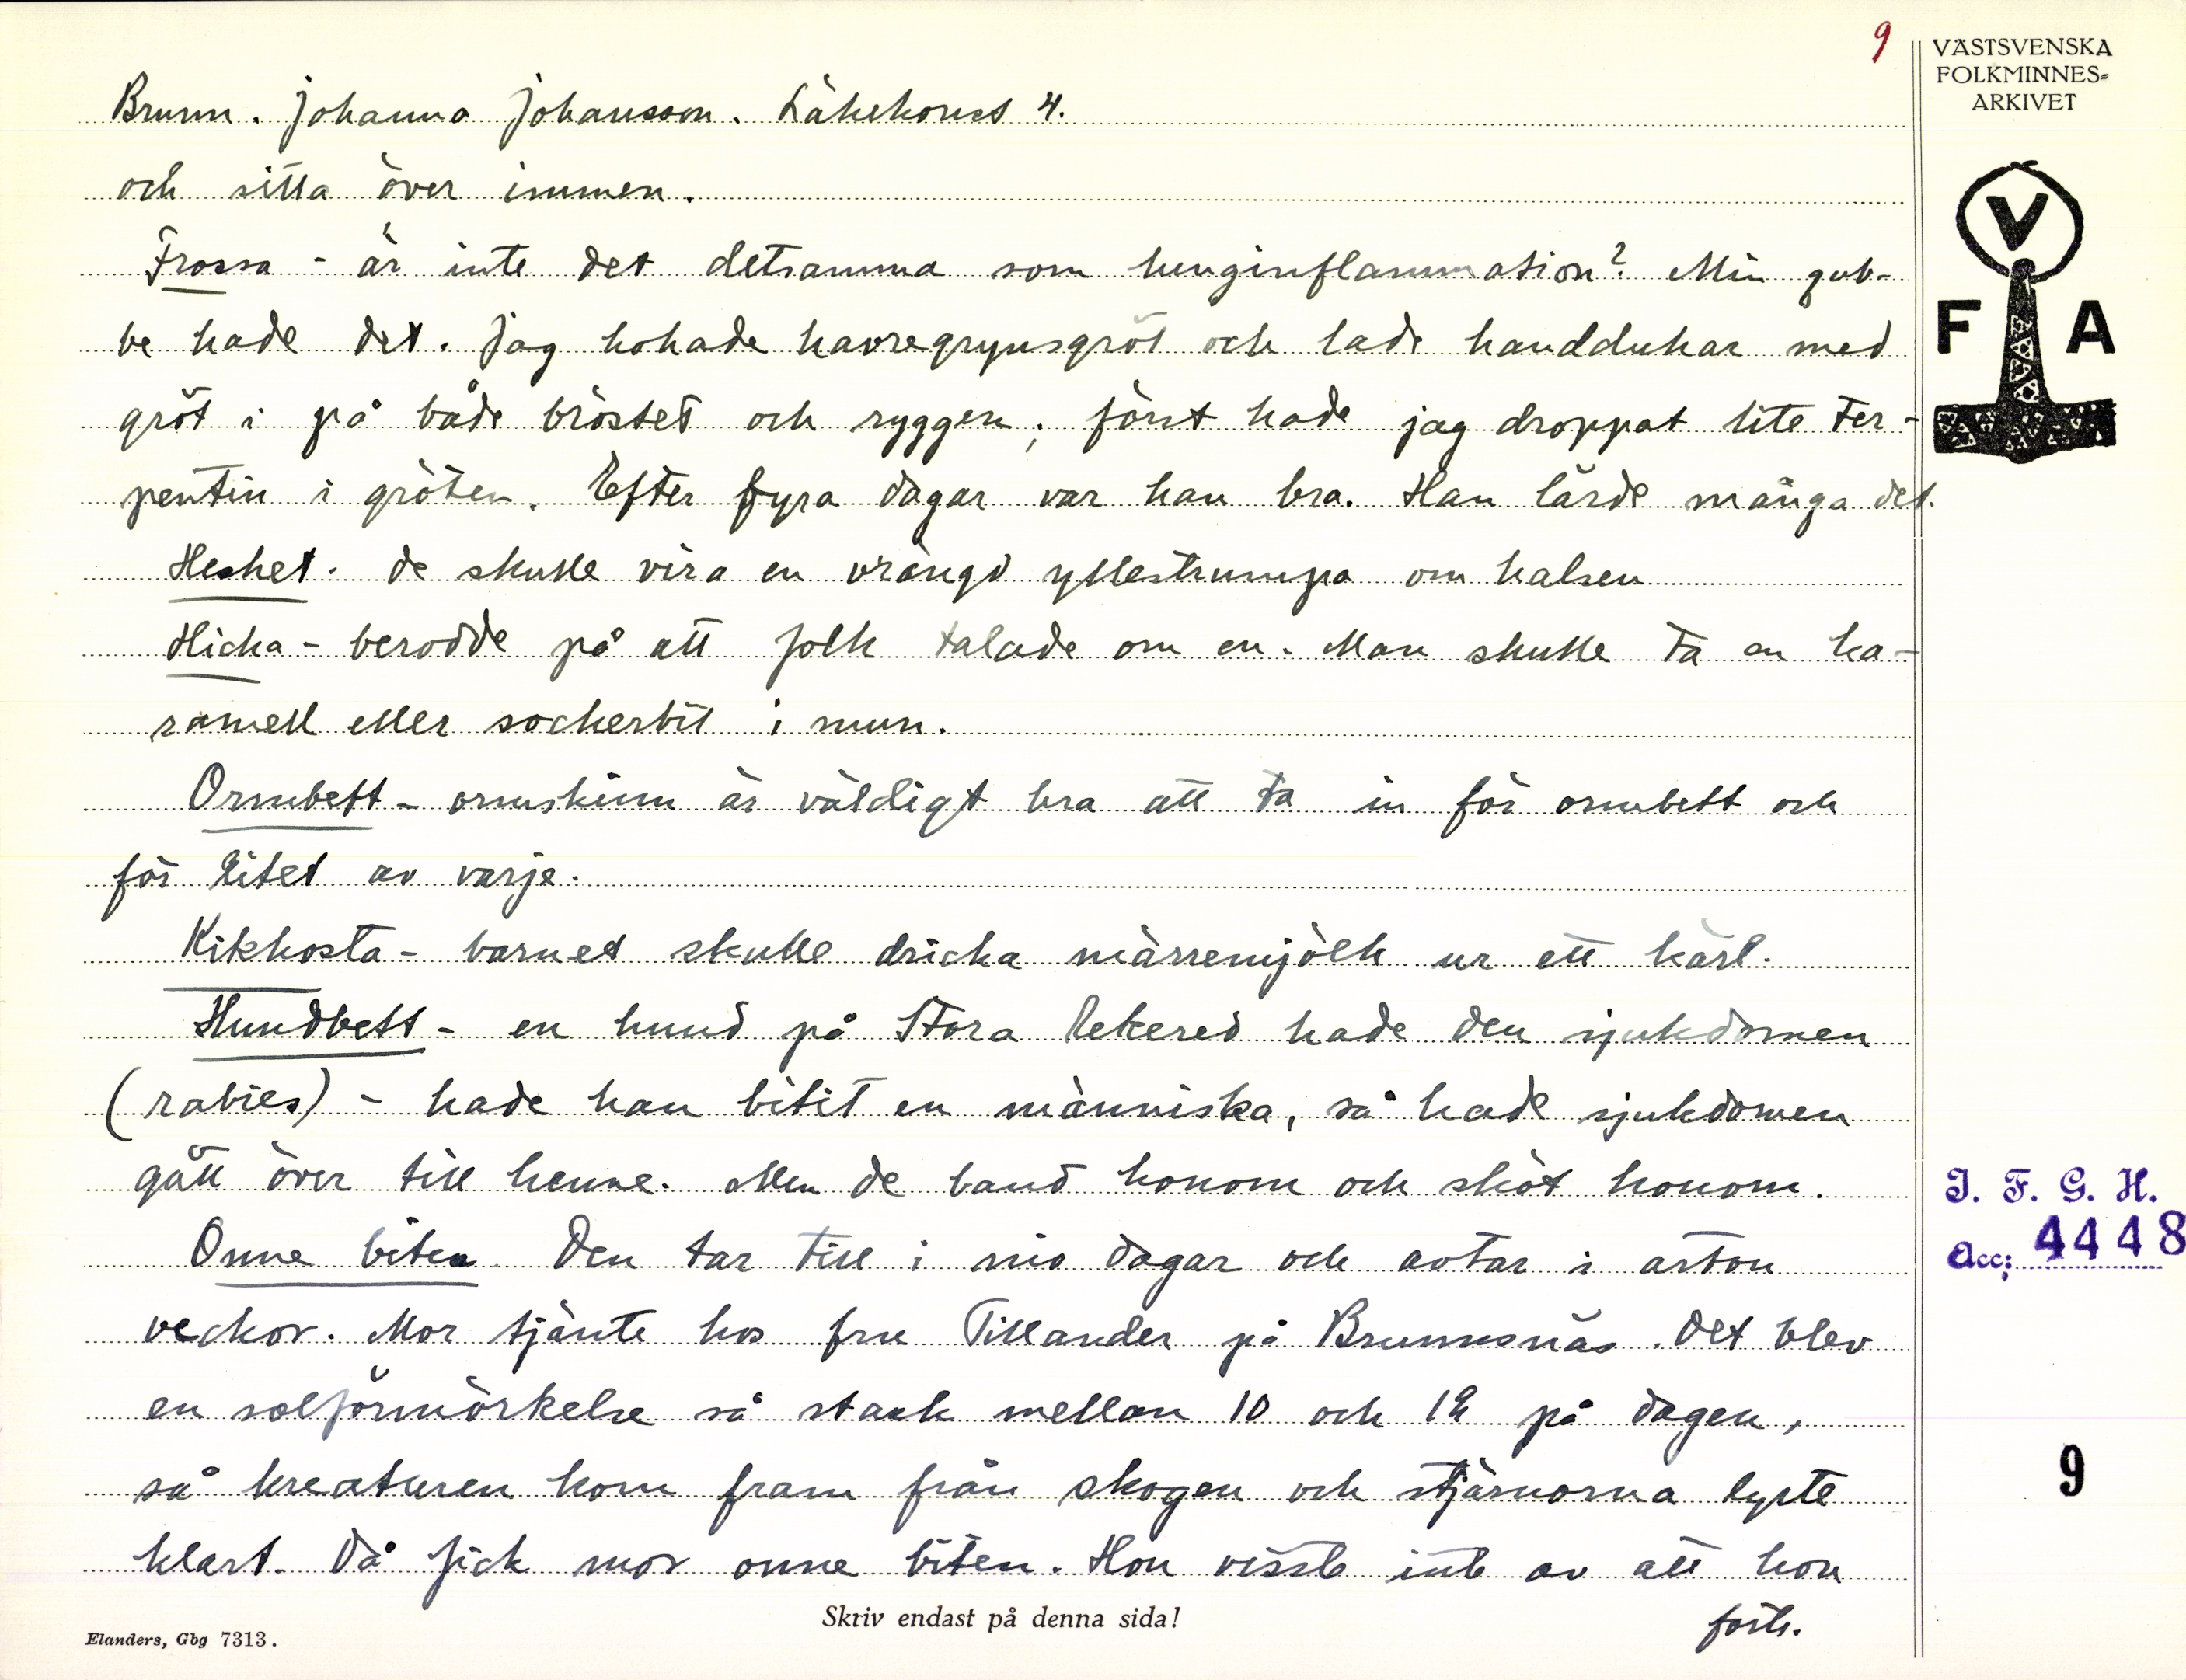 9
VÄSTSVENSKA
FOLKMINNES=
ARKIVET
Brunn. Johanna Johansson. Läkekonst 4.
och sitta över immen.
Frossa - är inte det detsamma som lunginflammation? Min gub-
be hade det. Jag kokade havregrynsgröt och lade handdukar med
gröt i på både bröstet och ryggen; först hade jag droppat lite ter-
pentin i gröten. Efter fyra dagar var han bra. Han lärde många det.
Heshet. de skulle vira en vrängd yllestrumpa om halsen
Hicka - berodde på att folk talade om en. Man skulle ta en ka-
ramell eller sockerbit i mun.
Ormbett - ormskinn är väldigt bra att ta in för ormbett och
för litet av varje.
Kikhosta - barnet skulle dricka märremjölk ur ett kärl.
Hundbett - en hund på Stora Rekered hade den sjukdomen
(rabies) - hade han bitit en människa, så hade sjukdomen
gått över till henne. Men de band honom och sköt honom.
Onne biten Den tar till i nio dagar och avtar i arton
veckor. Mor tjänte hos fru Tillander på Brunnsnäs. Det blev
en solförmörkelse så stark mellan 10 och 12 på dagen,
så kreaturen kom fram från skogen och stjärnorna lyste
klart. Då fick mor onne biten. Hon visste inte av att hon
forts.
V
F A
I. F. G. H.
Acc: 4448
9
Skriv endast på denna sida!
Elanders, Gbg 7313.